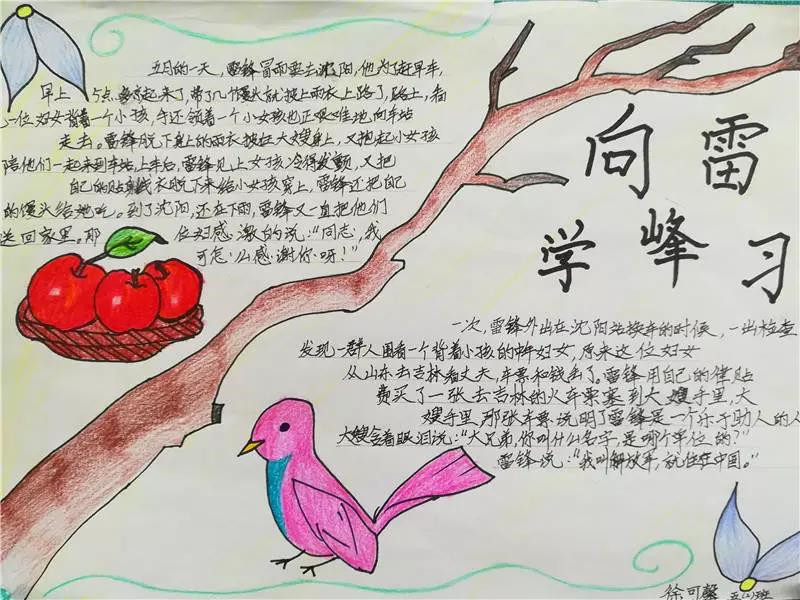 五月的一天，雷锋冒雨要去沈阳，他为了赶早车，
早上5点多就起来了，带了几个馒头就披上雨衣上路了，路上，看
一位妇女背着一个小孩，手还领着一个小女孩也正艰难地向车站
走去。雷锋脱下身上的雨衣披在大嫂身上，又抱起小女孩
陪他们一起来到车站，上车后，雷锋见小女孩冷得发颤，又把
自己的贴身线衣脱下来给小女孩穿上，雷锋还把自己
的馒头给她吃。到了沈阳，还在下雨，雷锋又一直把他们
送回家里。那位妇感激的说：“同志，我
可怎么感谢你呀！”
向雷
学峰习
一次，雷锋外出在沈阳站换车的时候，一出检查
发现一群人围看一个背着小孩的中妇女，原来这位妇女
从山东去吉林看丈夫，车票和钱丢了。雷锋用自己的津贴
费买了一张去吉林的火车票塞到大嫂手里，大
嫂手里，那张车票，说明了雷锋是一个乐于助人的人
大嫂含着眼泪说：“大兄弟，你叫什么名字，是哪个单位的？”
雷锋说：“我叫解放军，就住在中国。”
徐可馨 五(2)班